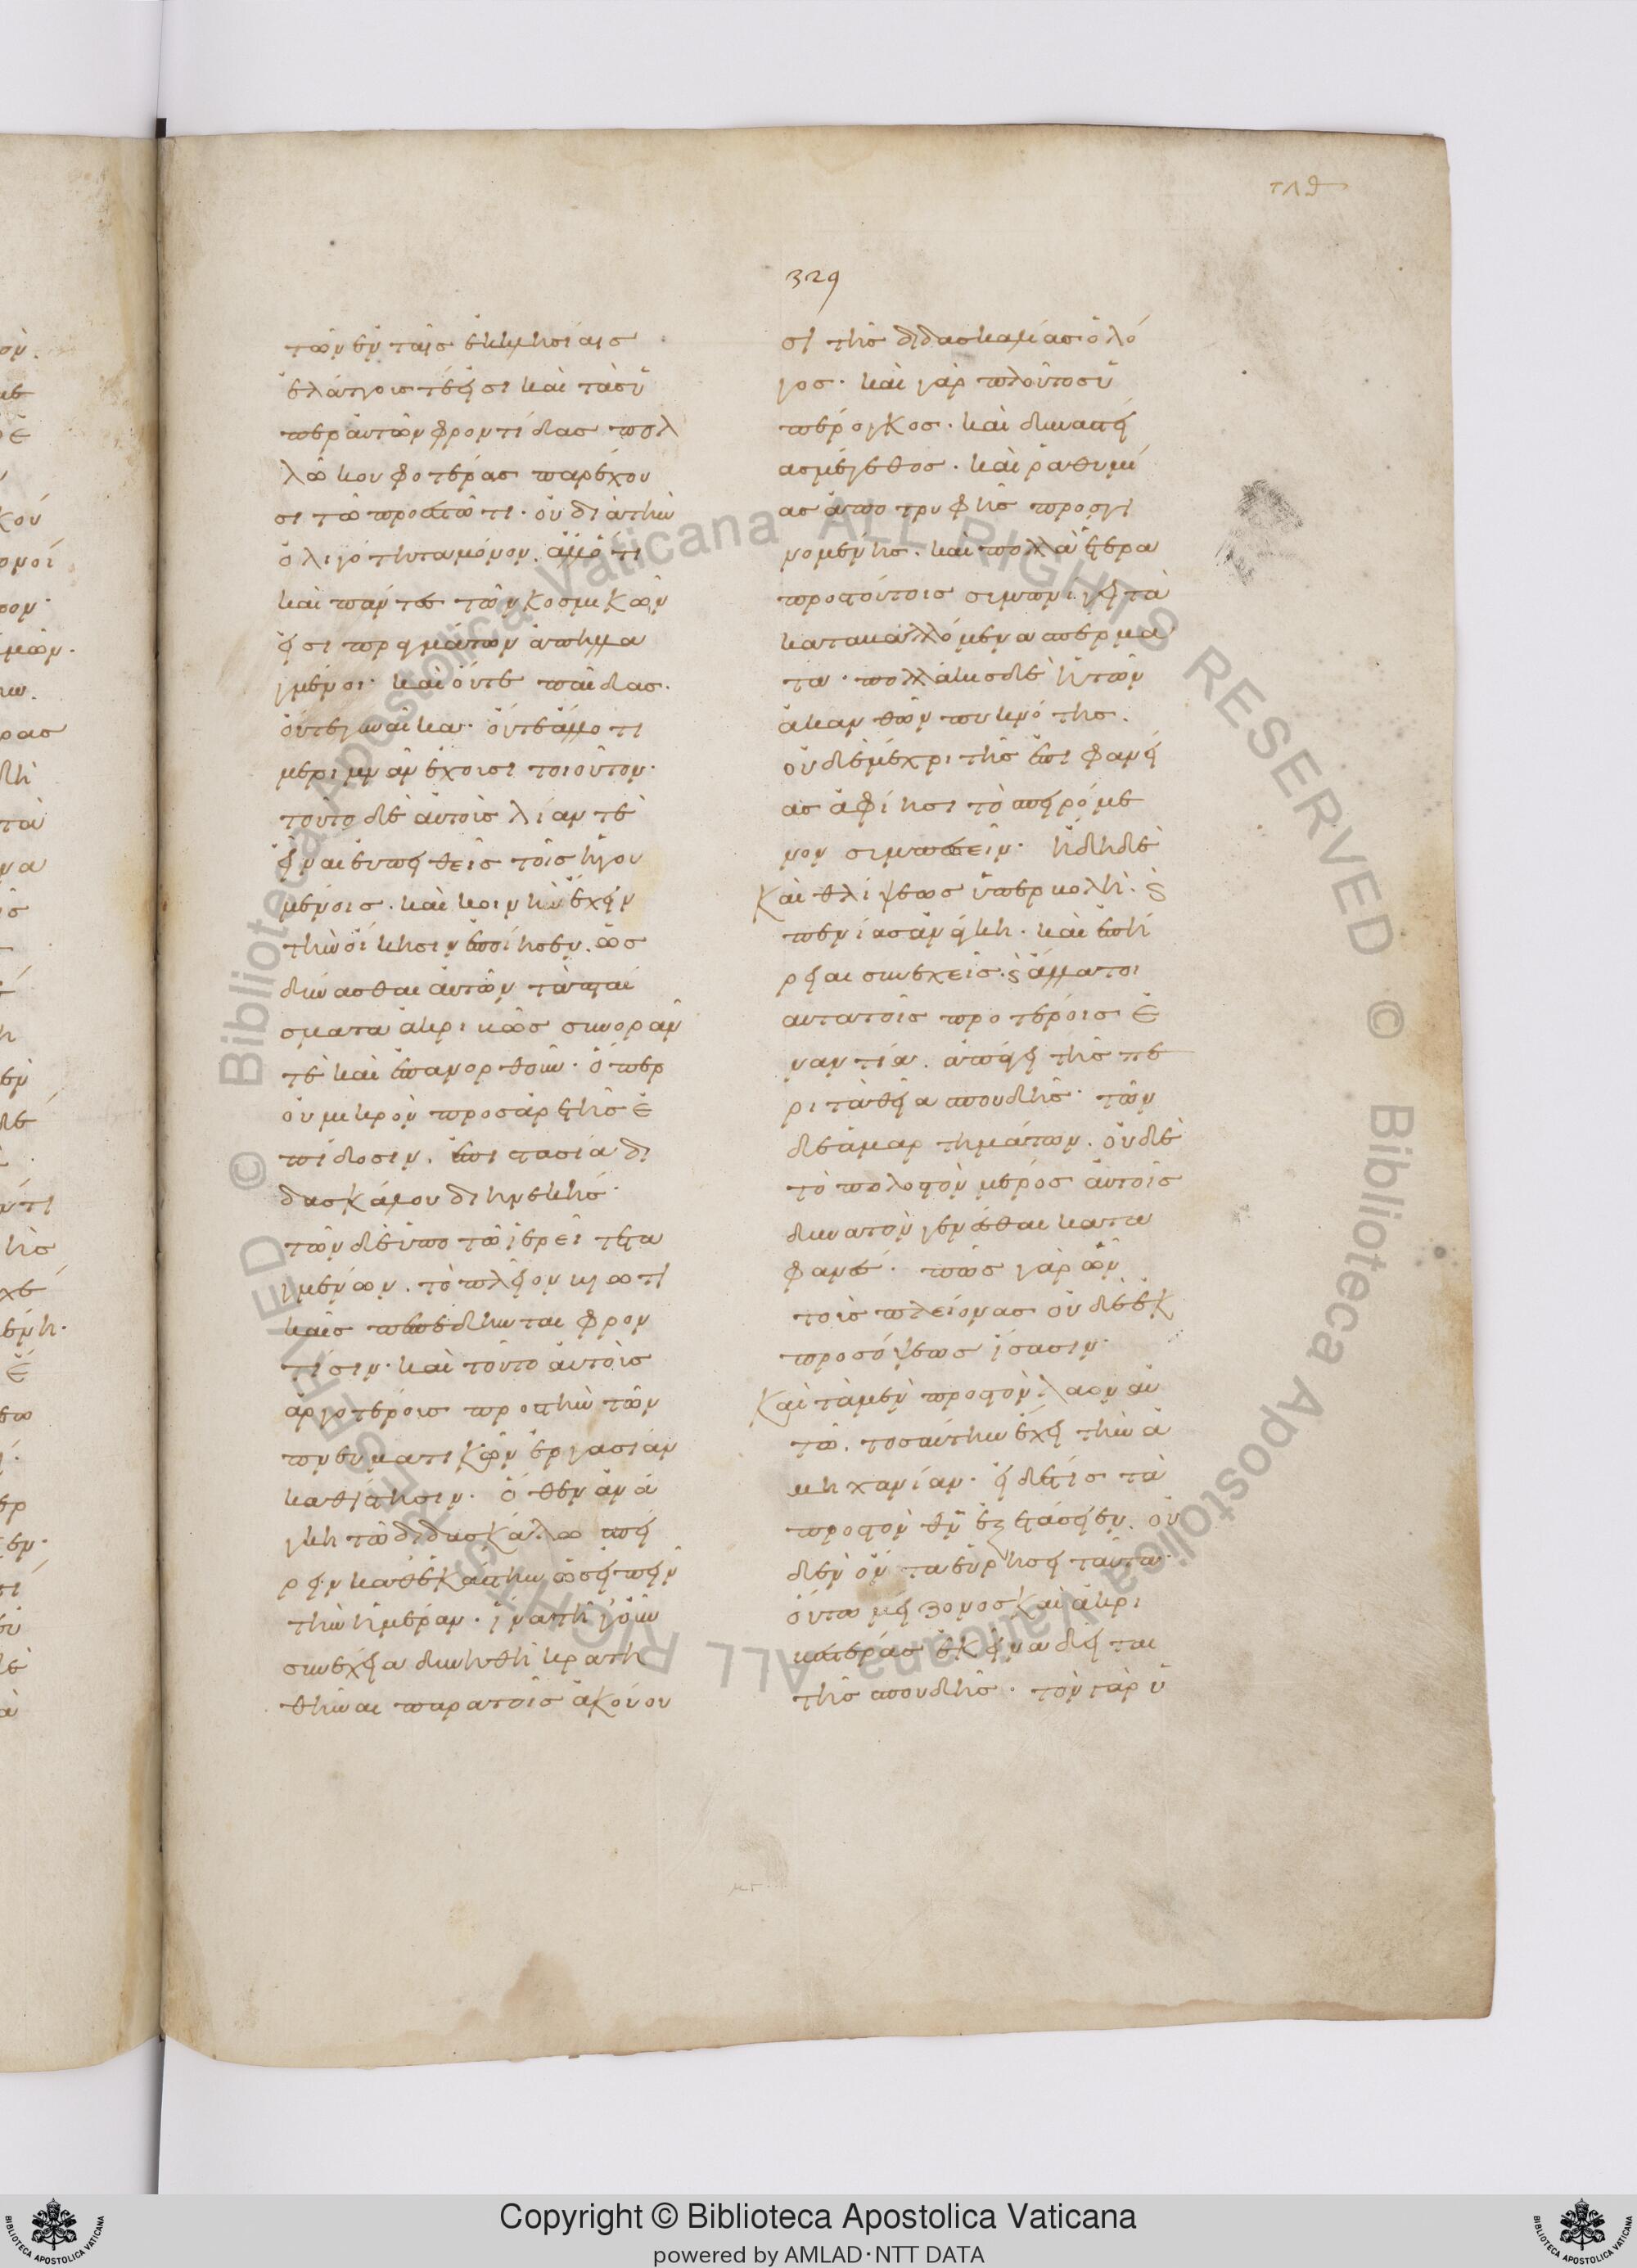 τλθ
329
τῶν ἐν ταῖς ἐκκλησίαις
ἐλάττοις τέ εἰσι καὶ τὰς ὑ
πὲρ αὐτῶν φροντίδας πολ
λῶ κουφοτέρας παρέχου
σι τῶ προεστῶτι· οὐ διὰ τὴν
ὀλιγότητα μόνον. ἀλλ' ὅτι
καὶ πάντες τῶν κοσμικῶν
εἰσι πραγμάτων ἀπηλλα
γμένοι· καὶ οὔτε παῖδας.
οὔτε γυναῖκα· οὔτε ἄλλο τι
μεριμνᾶν ἔχουσι τοιοῦτον·
τοῦτο δὲ αὐτοὺς λίαν τὲ
εἶναι εὐπειθεῖς τοῖς ἡγου
μένοις. καὶ κοινὴν ἔχειν
τὴν οἴκησιν ἐποίησεν. ὡς
δύνασθαι αὐτῶν τὰ πταί
σματα ἀκριβῶς συνορᾶν
τὲ καὶ ἐπανορθοῦν· ὅπερ
οὐ μικρὸν πρὸς ἀρετῆς ἐ
πίδοσιν. ἐπιστασία δι
δασκάλου διηνεκής·
τῶν δὲ ὑπὸ τῶ ἱερεῖ τετα
γμένων. τὸ πλεῖον βιωτι
καῖς πεπέδηνται φρον
τίσιν· καὶ τοῦτο αὐτοὺς
ἀργοτέρους πρὸς τὴν τῶν
πνευματικῶν ἐργασίαν
καθίστησιν. ὅθεν ἀνά
γκη τῶ διδασκάλω σπεί
ρειν καθ' ἑκάστην ὡς εἰπεῖν
τὴν ἡμέραν. ἵνα τῆ γοῦν
συνεχεία δυνηθῆ κρατη
θῆναι παρὰ τοῖς ἀκούου
σι τῆς διδασκαλίας ὁ λό
γος· καὶ γὰρ πλοῦτος ὑ
πέρογκος. καὶ δυναστεί
ας μέγεθος. καὶ ῥαθυμί
ας ἀπὸ τρυφῆς προσγι
νομένης. καὶ πολλὰ ἕτερα
πρὸς τούτοις συμπνίγει τὰ
καταβαλλόμενα σπέρμα
τα· πολλάκις δὲ ἡ τῶν
ἀκανθῶν πυκνότης.
οὐδὲ μέχρι τῆς ἐπιφανεί
ας ἀφίησι τὸ σπειρόμε
νον συμπεσεῖν· ἤδη δὲ
Καὶ θλίψεως ὑπερβολὴ. καὶ
πενίας ἀνάγκη. καὶ ἐπή
ρειαι συνεχεῖς. καὶ ἄλλα τοι
αῦτα τοῖς προτέροις ἐ
ναντία. ἀπάγει τῆς πε
ρὶ τὰ θεῖα σπουδῆς· τῶν
δὲ ἁμαρτημάτων. οὐδὲ
τὸ πολοστὸν μέρος αὐτοῖς
δυνατὸν γενέσθαι κατα
φανές. πῶς γὰρ ὧν
τοὺς πλείονας οὐδὲ ἐκ
προσόψεως ἴσασιν·
Καὶ τὰ μὲν πρὸς τὸν λαὸν αὐ
τῶ. τοσαύτην ἔχει τὴν ἀ
μηχανίαν· εἰ δέ τις τὰ
πρὸς τὸν θν ἐξετάσειεν. οὐ
δὲν ὄντα εὑρήσει ταῦτα·
οὕτω μείζονος καὶ ἀκρι
βεστέρας ἐκεῖνα δεῖται
τῆς σπουδῆς· τὸν γὰρ ὑ
Copyright © Biblioteca Apostolica Vaticana
powered by AMLAD·NTT DATA